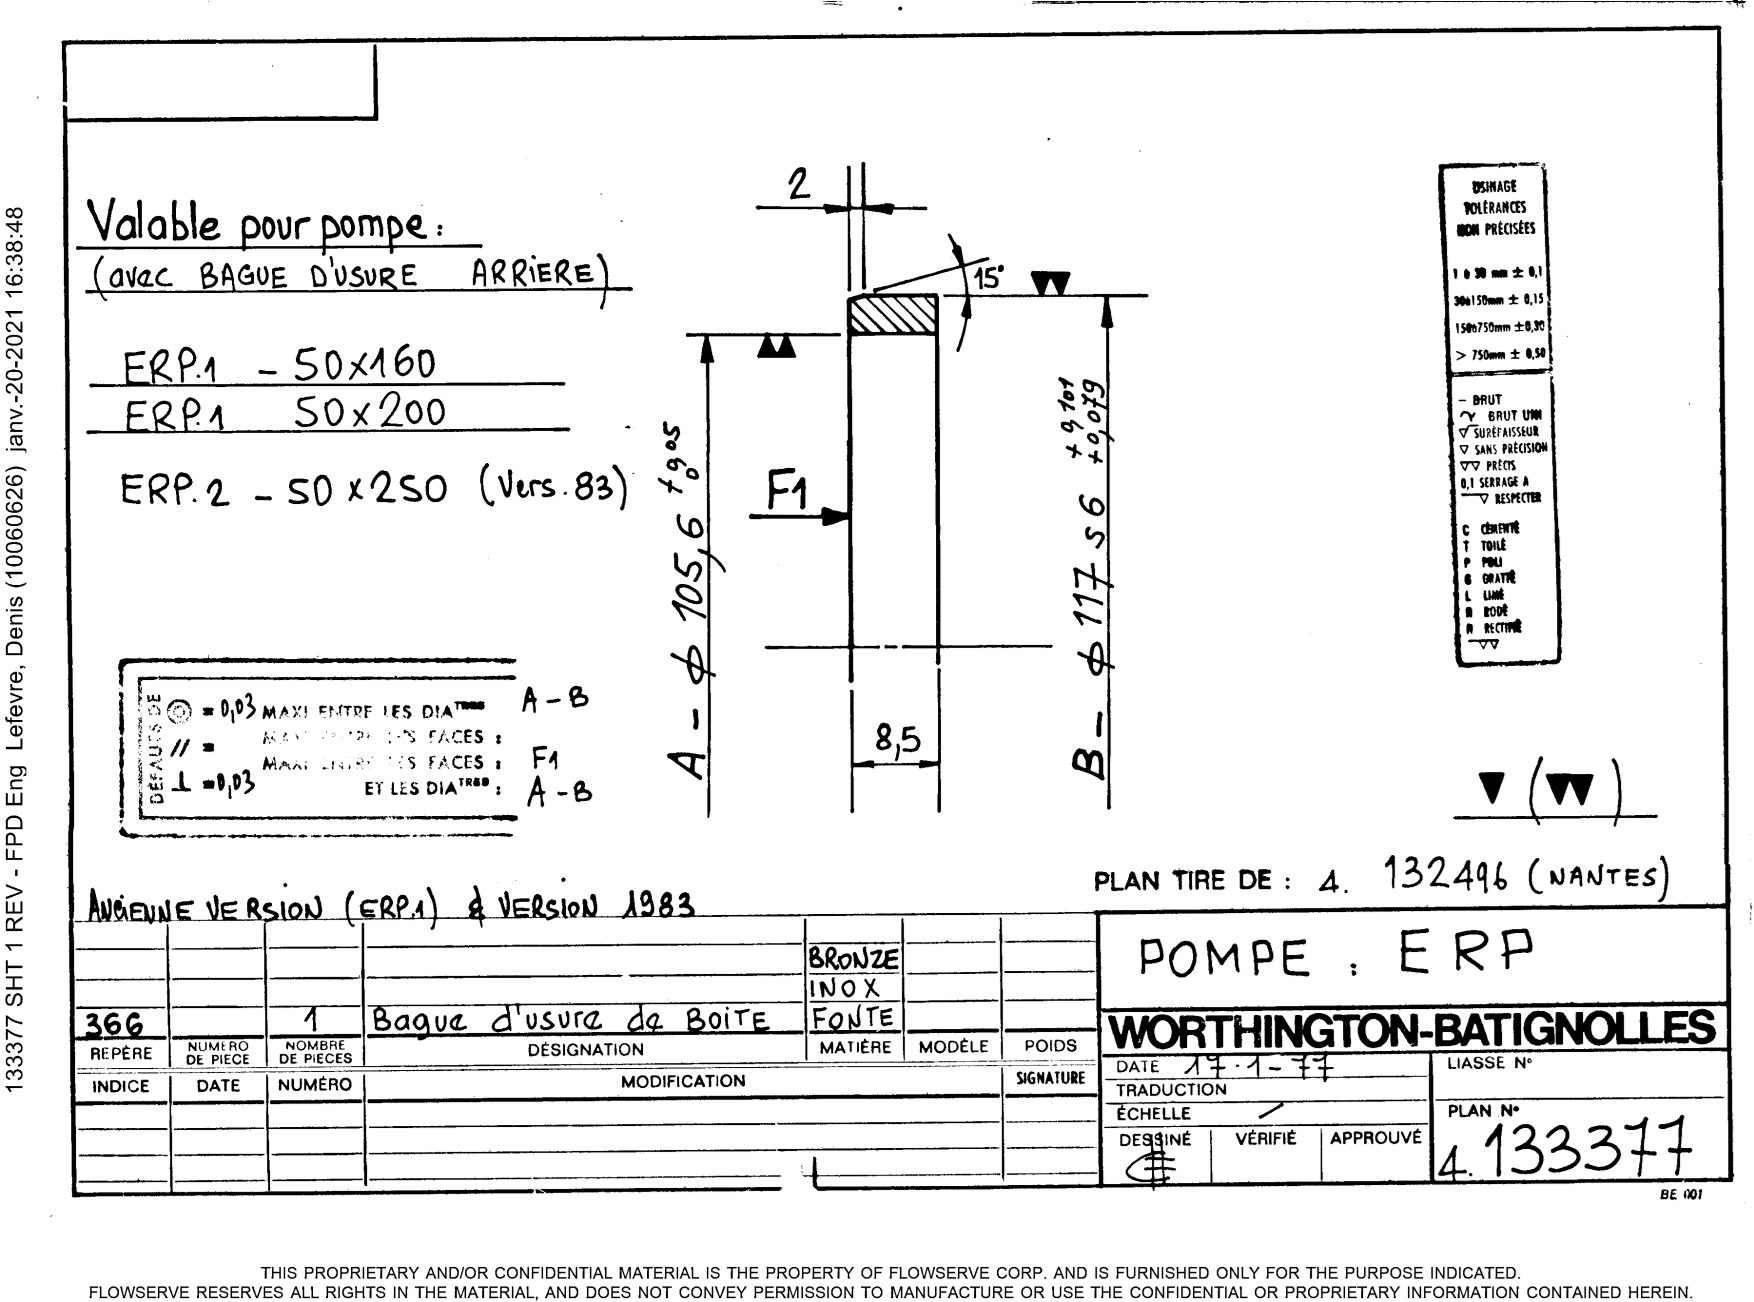 133377 SHT 1 REV - FPD Eng Lefevre, Denis (10060626) janv.-20-2021 16:38:48
Valable pour pompe :
(avec BAGUE D'USURE ARRIERE)
ERP.1 - 50x160
ERP.1 50x200
ERP.2 - 50x250 (Vers. 83)
2
15°
F1
A - ϕ 105,6 +0,05 0
B - ϕ 117 s6 +0,101 +0,079
8,5
USINAGE
TOLÉRANCES
NON PRÉCISÉES
1 à 30 mm ± 0,1
30à150mm ± 0,15
150à750mm ±0,30
> 750mm ± 0,50
- BRUT
BRUT UNI
SURÉPAISSEUR
▽ SANS PRÉCISION
▽▽ PRÉCIS
0,1 SERRAGE A
▽ RESPECTER
C CÉMENTÉ
T TOILÉ
P POLI
G GRATTÉ
L LIMÉ
R RODÉ
R RECTIFIÉ
▽▽
DÉFAUTS DE
◎ = 0,03 MAXI ENTRE LES DIATRES A - B
// = MAXI ENTRE LES FACES :
MAXI ENTRE LES FACES : F1
⊥ = 0,03 ET LES DIATRES : A - B
▼ (▼▼)
PLAN TIRE DE : 4. 132496 (NANTES)
ANCIENNE VERSION (ERP.1) & VERSION 1983
BRONZE
INOX
366 1 Bague d'usure de BOITE FONTE
REPÈRE NUMÉRO DE PIECE NOMBRE DE PIÈCES DÉSIGNATION MATIÈRE MODÈLE POIDS
INDICE DATE NUMÉRO MODIFICATION SIGNATURE
POMPE : ERP
WORTHINGTON-BATIGNOLLES
DATE 17-1-77
LIASSE N°
TRADUCTION
ÉCHELLE /
PLAN N°
DESSINÉ VÉRIFIÉ APPROUVÉ
4. 133377
BE 001
THIS PROPRIETARY AND/OR CONFIDENTIAL MATERIAL IS THE PROPERTY OF FLOWSERVE CORP. AND IS FURNISHED ONLY FOR THE PURPOSE INDICATED.
FLOWSERVE RESERVES ALL RIGHTS IN THE MATERIAL, AND DOES NOT CONVEY PERMISSION TO MANUFACTURE OR USE THE CONFIDENTIAL OR PROPRIETARY INFORMATION CONTAINED HEREIN.